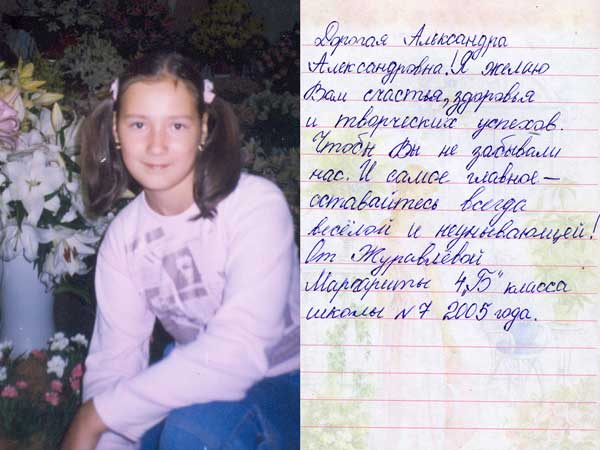 Дорогая Александра
Александровна! Я желаю
Вам счастья, здоровья
и творческих успехов.
Чтобы Вы не забывали
нас. И самое главное —
оставайтесь всегда
весёлой и неунывающей!
От Журавлевой
Маргариты 4„Б" класса
школы №7 2005 года.